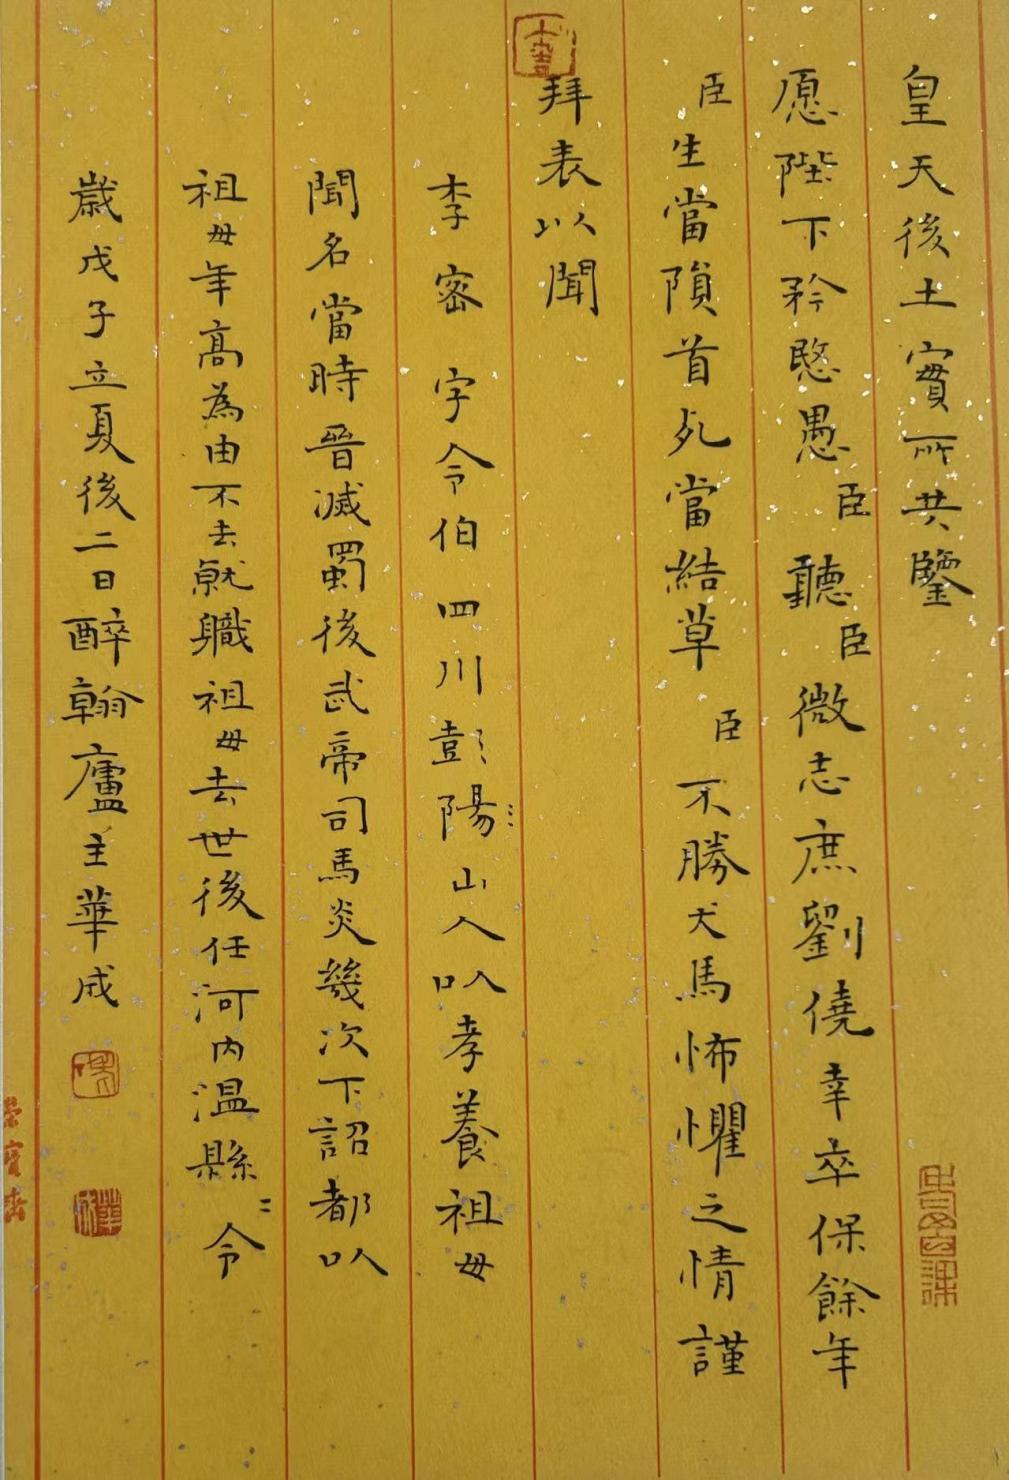 皇天後土實所共鑒
愿陛下矜愍愚臣聽臣微志庶劉僥幸卒保餘年
臣生當隕首死當結草臣不勝犬馬怖懼之情謹
拜表以聞
李密字令伯四川彭陽山人以孝養祖母
聞名當時晉滅蜀後武帝司馬炎幾次下詔都以
祖母年高為由不去就職祖母去世後任河内温縣〻令
歲戊子立夏後二日醉翰廬主華成
榮寶齋